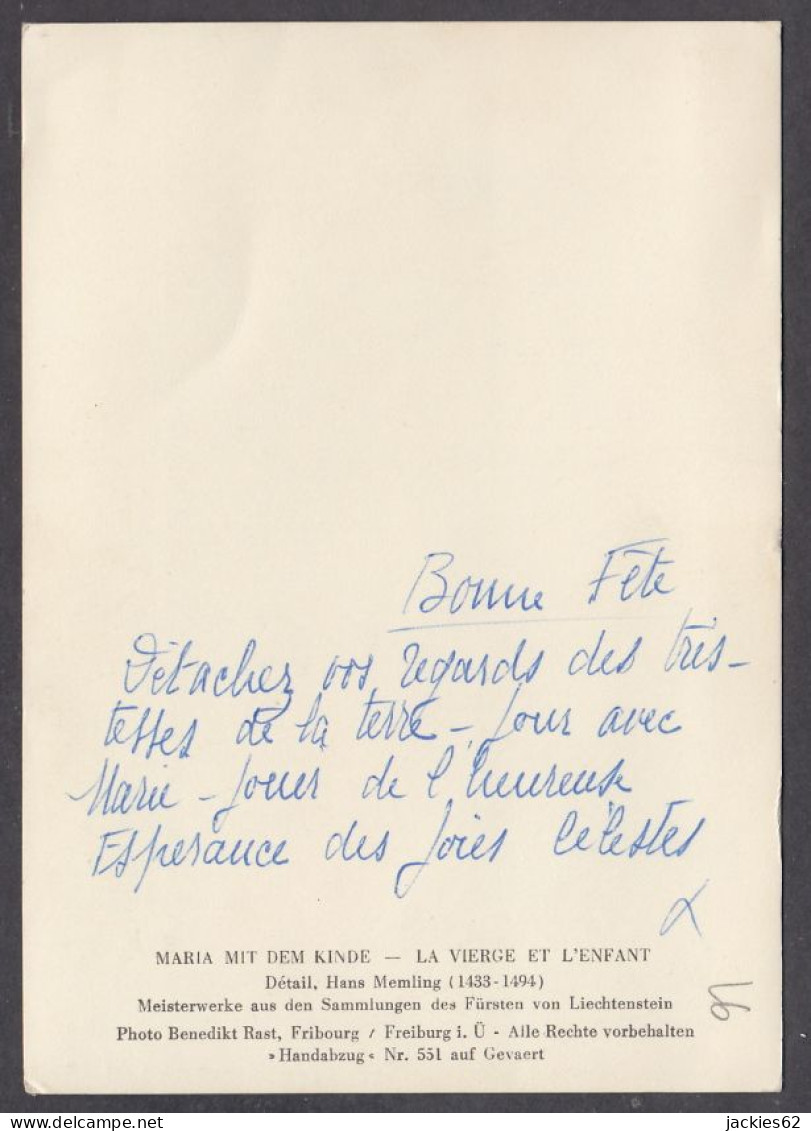 Bonne Fête
Détachez vos regards des tris-
tesses de la terre - Jour avec
Marie - Jouer de l'heureuse
Espérance des Joies Célestes
MARIA MIT DEM KINDE — LA VIERGE ET L'ENFANT
Détail, Hans Memling (1433-1494)
Meisterwerke aus den Sammlungen des Fürsten von Liechtenstein
Photo Benedikt Rast, Fribourg / Freiburg i. Ü - Alle Rechte vorbehalten
»Handabzug« Nr. 551 auf Gevaert
delcampe.net
jackies62